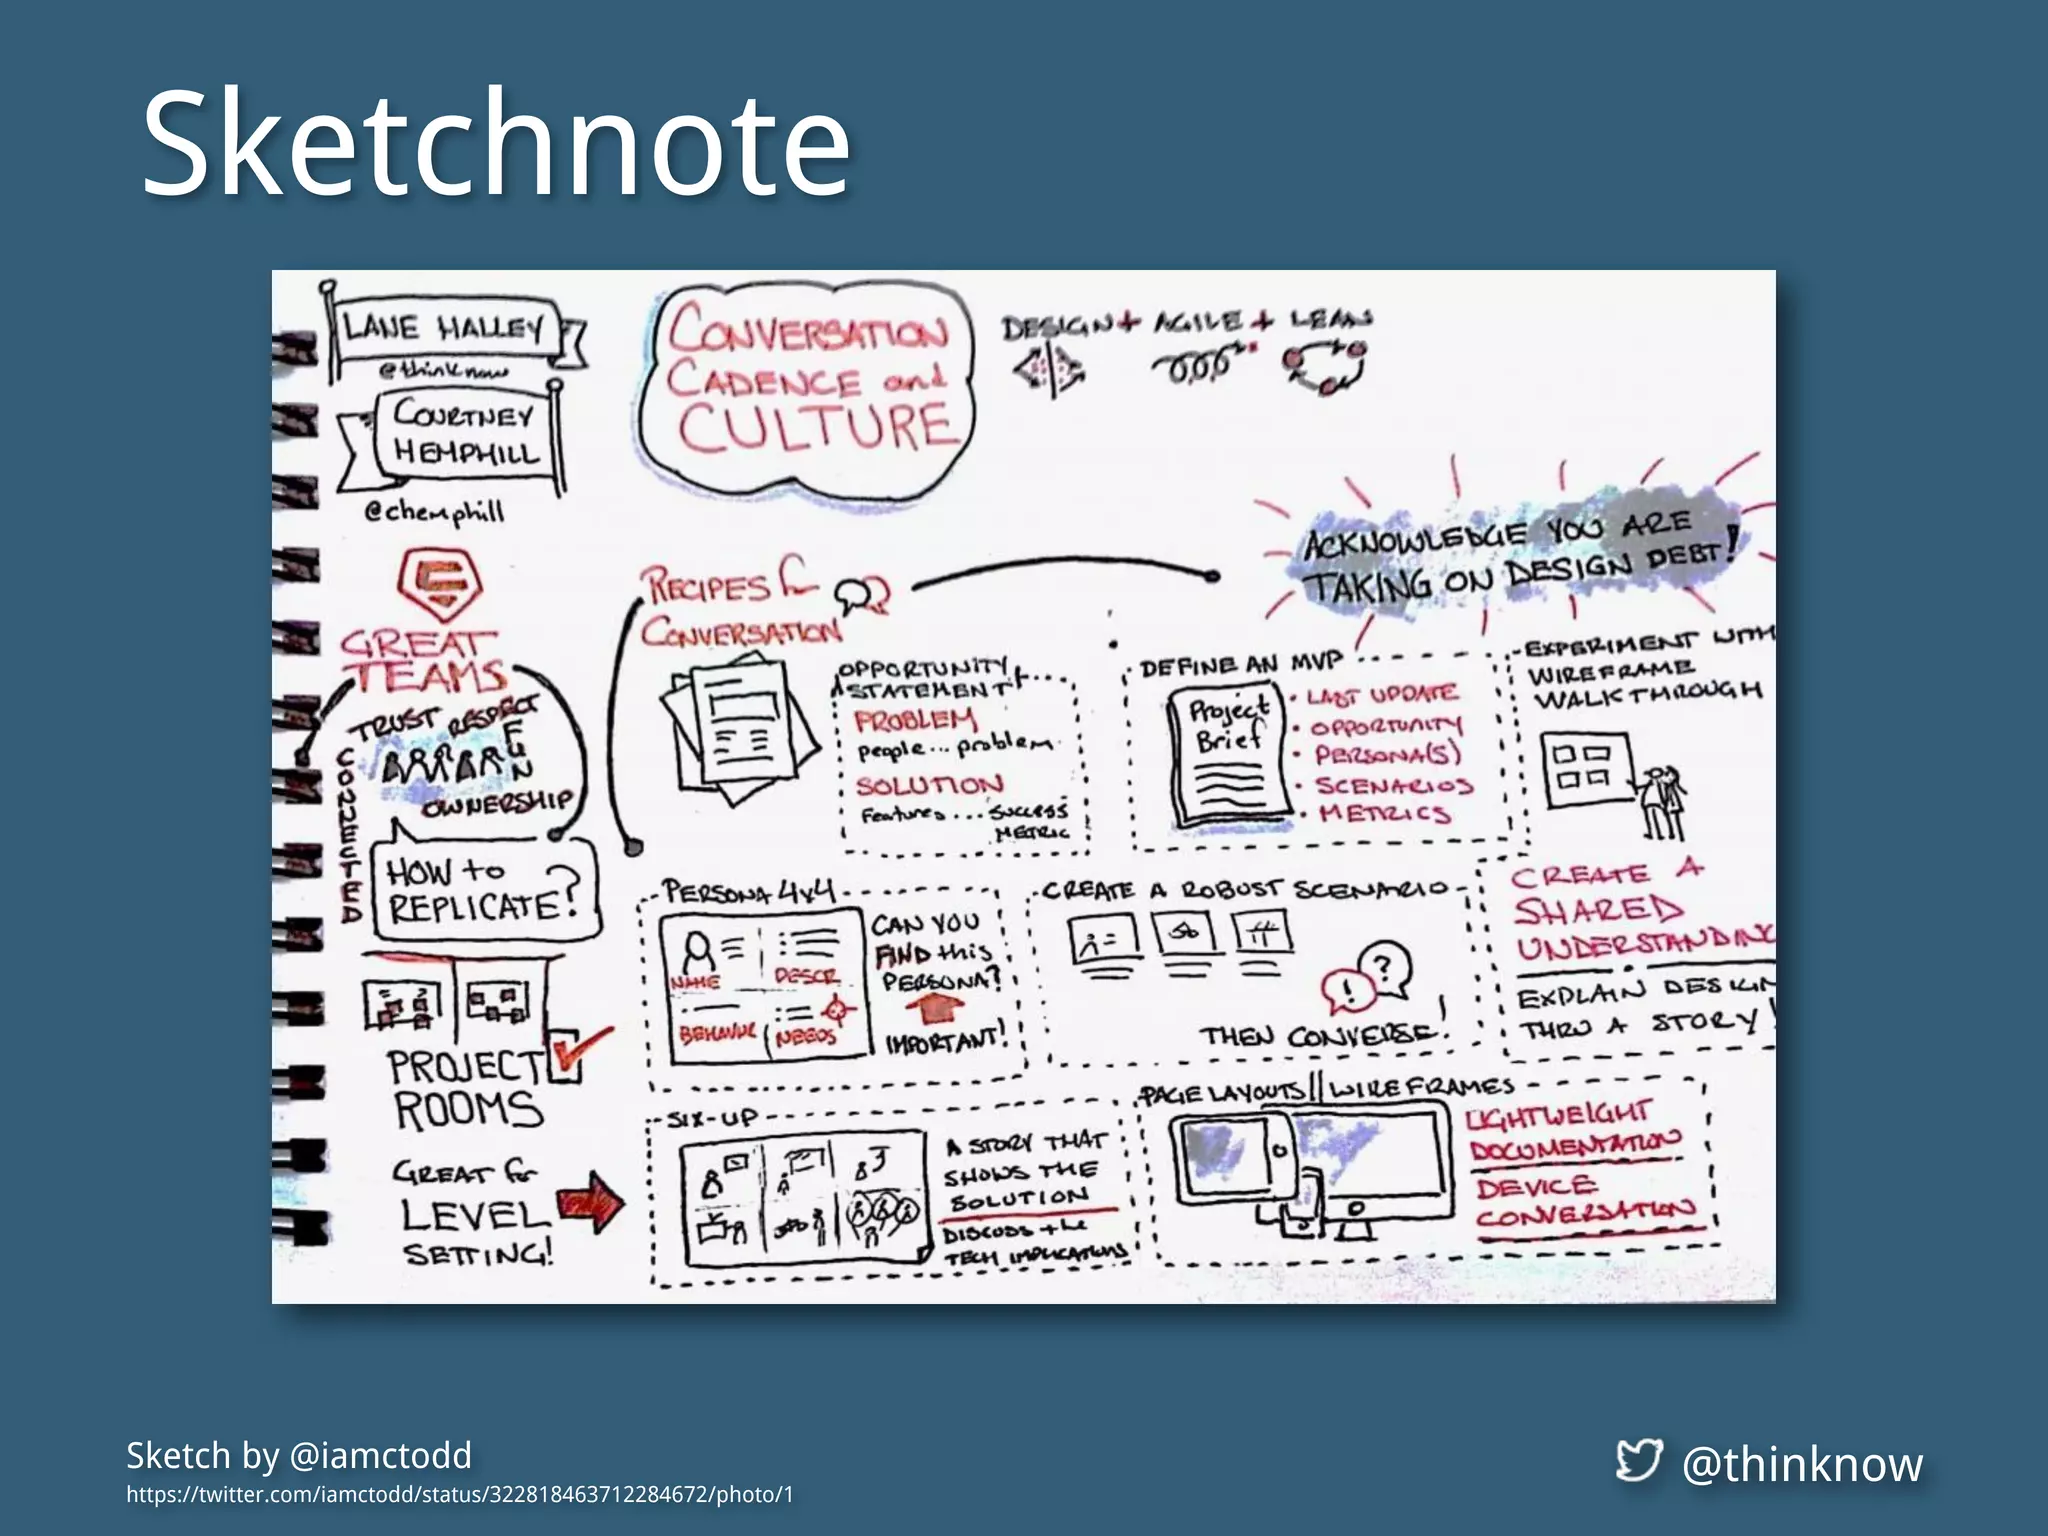 Sketchnote
LANE HALLEY
@thinknow
COURTNEY
HEMPHILL
@chemphill
CONVERSATION
CADENCE and
CULTURE
DESIGN + AGILE + LEAN
ACKNOWLEDGE YOU ARE
TAKING ON DESIGN DEBT!
GREAT
TEAMS
TRUST RESPECT
FUN
CONNECTED
OWNERSHIP
HOW to
REPLICATE?
PROJECT
ROOMS
GREAT for
LEVEL
SETTING!
RECIPES for
CONVERSATION
OPPORTUNITY
STATEMENT
PROBLEM
people... problem
SOLUTION
Features... SUCCESS
METRIC
DEFINE AN MVP
Project
Brief
• LAST UPDATE
• OPPORTUNITY
• PERSONA(S)
• SCENARIOS
• METRICS
EXPERIMENT WITH
WIREFRAME
WALKTHROUGH
CREATE A
SHARED
UNDERSTANDING
EXPLAIN DESIGN
THRU A STORY!
PERSONA 4x4
NAME
DESCR
BEHAVIOR
NEEDS
CAN YOU
FIND this
PERSONA?
IMPORTANT!
CREATE A ROBUST SCENARIO
!
?
THEN CONVERSE!
SIX-UP
A STORY THAT
SHOWS THE
SOLUTION
DISCUSS the
TECH IMPLICATIONS
PAGE LAYOUTS || WIREFRAMES
LIGHTWEIGHT
DOCUMENTATION
DEVICE
CONVERSATION
Sketch by @iamctodd
https://twitter.com/iamctodd/status/322818463712284672/photo/1
@thinknow